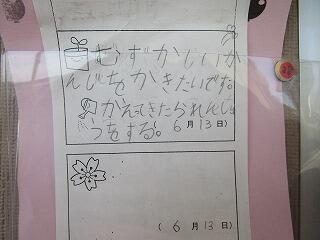 むずかしいか
んじをかきたいです。
かえってきたられんしゅ
うをする。
6月13日)
(6月13日)